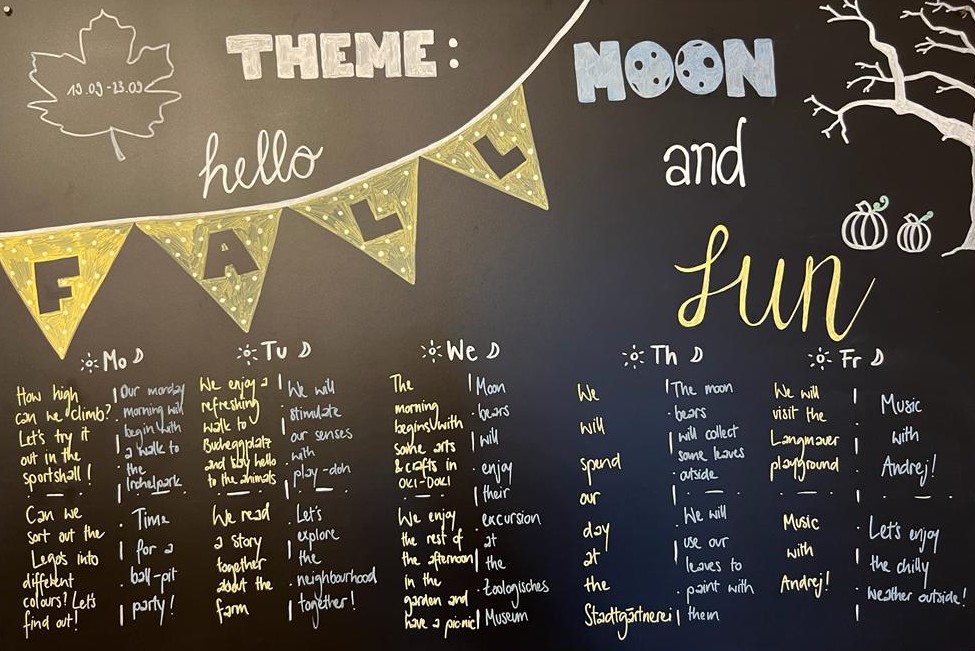 19.09-23.09
THEME: MOON
hello
and
FALL
fun
Mo
How high
can we climb?
Let's try it
out in the
sportshall!
Can we
sort out the
Legos into
different
colours? Let's
find out!
Our monday
morning will
begin with
a walk to
the
Irchelpark.
Time
for a
ball-pit
party!
Tu
We enjoy a
refreshing
walk to
Bucheggplatz
and say hello
to the animals
We read
a story
together
about the
farm
We will
stimulate
our senses
with
play-doh
Let's
explore
the
neighbourhood
together!
We
The
morning
begins with
some arts
& crafts in
OKI-DOKI
We enjoy
the rest of
the afternoon
in the
garden and
have a picnic
Moon
bears
will
enjoy
their
excursion
at
the
Zoologisches
Museum
Th
We
will
spend
our
day
at
the
Stadtgärtnerei
The moon
bears
will collect
some leaves
outside
We will
use our
leaves to
paint with
them
Fr
We will
visit the
Langmauer
playground
Music
with
Andrej!
Music
with
Andrej!
Let's enjoy
the chilly
weather outside!